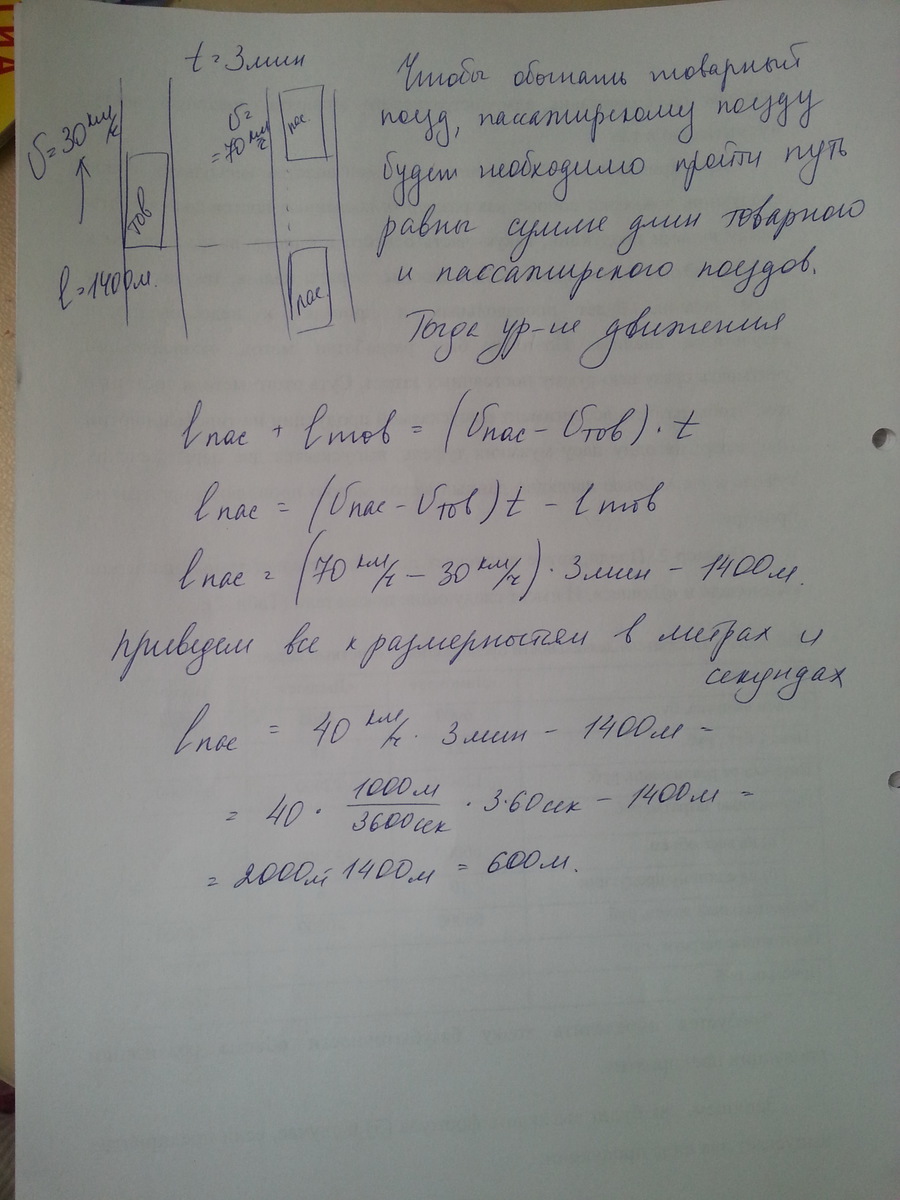 t = 3мин
υ = 30 км/ч
υ =
= 70 км/ч
пас.
тов
l = 1400м.
пас.
Чтобы обогнать товарный
поезд, пассажирскому поезду
будет необходимо пройти путь
равны сумме длин товарного
и пассажирского поездов.
Тогда ур-ие движения
l пас + l тов = (υпас − υтов) · t
l пас = (υпас − υтов) t − l тов
l пас = (70 км/ч − 30 км/ч) · 3мин − 1400м.
приведем все к размерностям в метрах и
секундах
l пас = 40 км/ч · 3мин − 1400м =
= 40 · 1000м/3600сек · 3·60сек − 1400м =
= 2000м − 1400м = 600м.